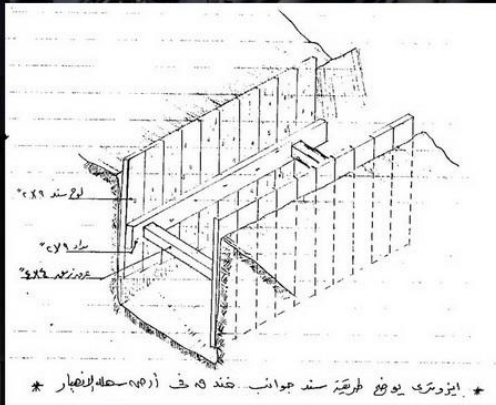 لوح سند ٩×٢"
مداد ٩×٢"
عرقة زنق ٤×٤"
* ايزومترى يوضح طريقة سند جوانب خندق فى أرض سهلة الانهيار *